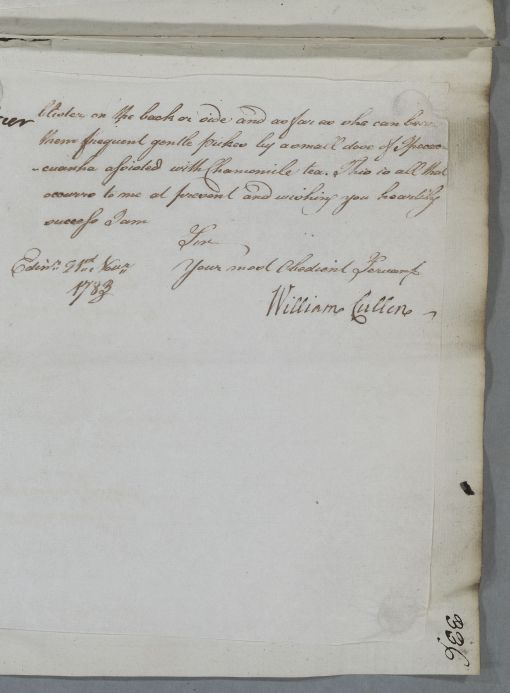 blister on the back or side and as far as she can bear
them frequent gentle pukes by a small dose of Ipecac-
-cuanha assisted with Chamomile tea. This is all that
occurrs to me at present and wishing you heartily
success I am
Sir
Edinr. 21st. Novr. Your most Obedient Servant
1783
William Cullen
336